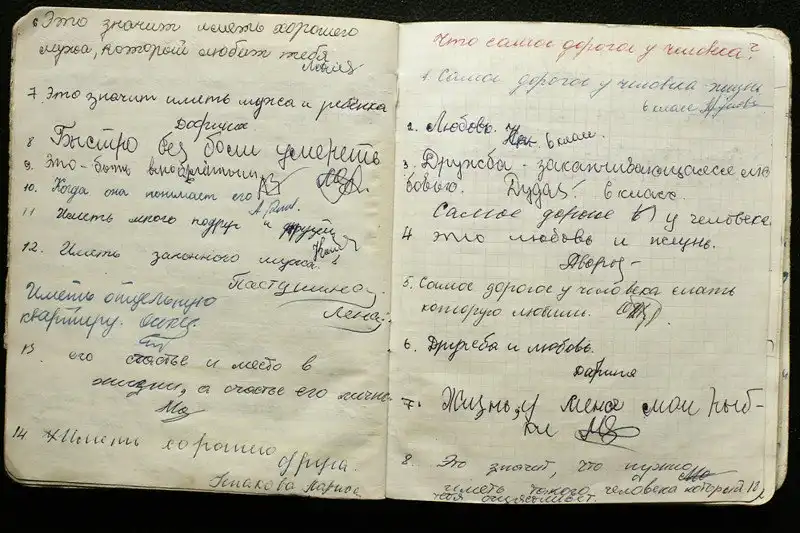 6 Это значит иметь хорошего
мужа, который любит тебя
7 Это значит иметь мужа и ребёнка
Дарина
8 Быстро без боли умереть
9. Это - быть
10. Когда она понимает его
11 Иметь много подруг и друзей
12. Иметь законного мужа.
Пастушина
Лена
Иметь отдельную
квартиру.
13 его счастье и место в
жизни, а счастье его личне
14 Иметь хорошего
друга.
Лариса
Что самое дорогое у человека?
1. Самое дорогое у человека - жизнь
6 класс
2. Любовь. 6 класс.
3. Дружба - заканчивающаяся лю
бовью. 6 класс.
Самое дорогое у человека
4 это любовь и жизнь.
5. Самое дорогое у человека
которую любишь.
6. Дружба и любовь.
Дарина
7. Жизнь, у меня мои рыб-
ки
8. Это значит, что нужно
иметь такого человека который